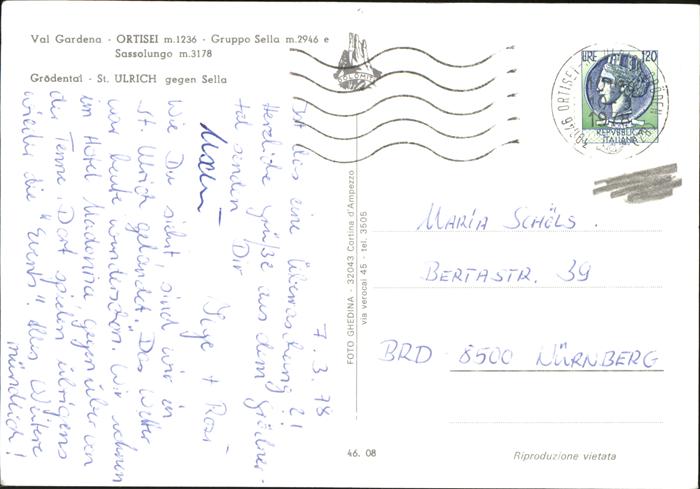 Val Gardena - ORTISEI m.1236 - Gruppo Sella m.2946 e
Sassolungo m.3178
Grödental - St. ULRICH gegen Sella
DOLOMITI
LIRE 120
REPVBBLICA
ITALIANA
39046 ORTISEI
7.3.78
Ist das eine Überraschung?!
Herzliche Grüße aus dem Grödner-
tal senden Dir
Inge + Rosi
Wie Du siehst sind wir in
St. Ulrich gelandet. Das Wetter
war heute wunderschön. Wir wohnen
im Hotel Madonna gegenüber von
der Tenne. Dort spielen übrigens
wieder die "Events". Alles Weitere
mündlich!
FOTO GHEDINA - 32043 Cortina d'Ampezzo
via verocai 45 - tel. 3505
MARIA SCHÖLS.
BERTASTR. 39
BRD 8500 NÜRNBERG
46. 08
Riproduzione vietata